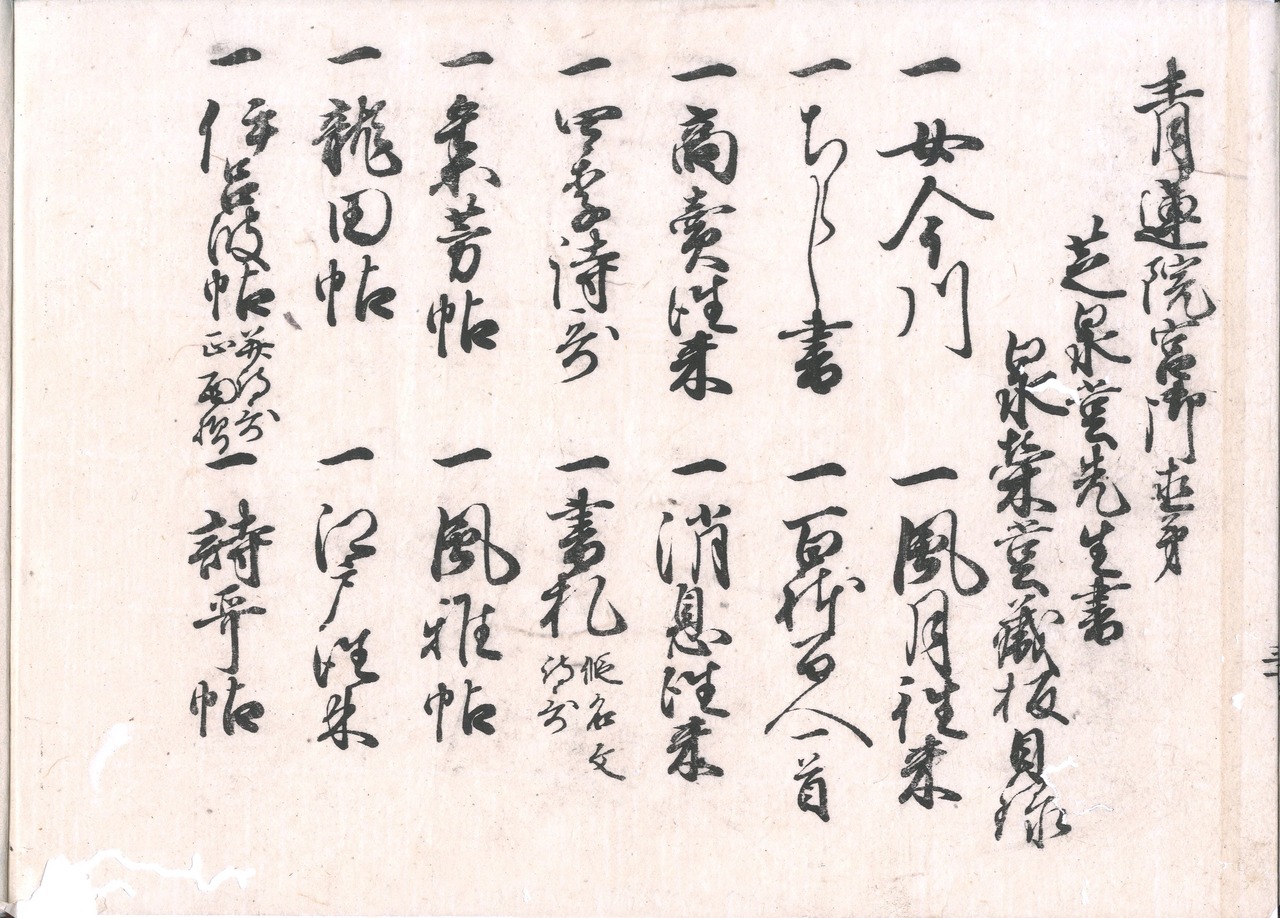 青蓮院宮御門直弟
芝泉堂先生書
泉榮堂藏板目録
一女今川
一風月往来
一ちらし書
一百瀬百人一首
一商賣往来
一消息往来
一四季詩哥
一書札
仮名文
詩哥
一集芳帖
一風雅帖
一龍田帖
一江戸往来
一伊呂波帖
并詩哥
正面摺
一詩哥帖